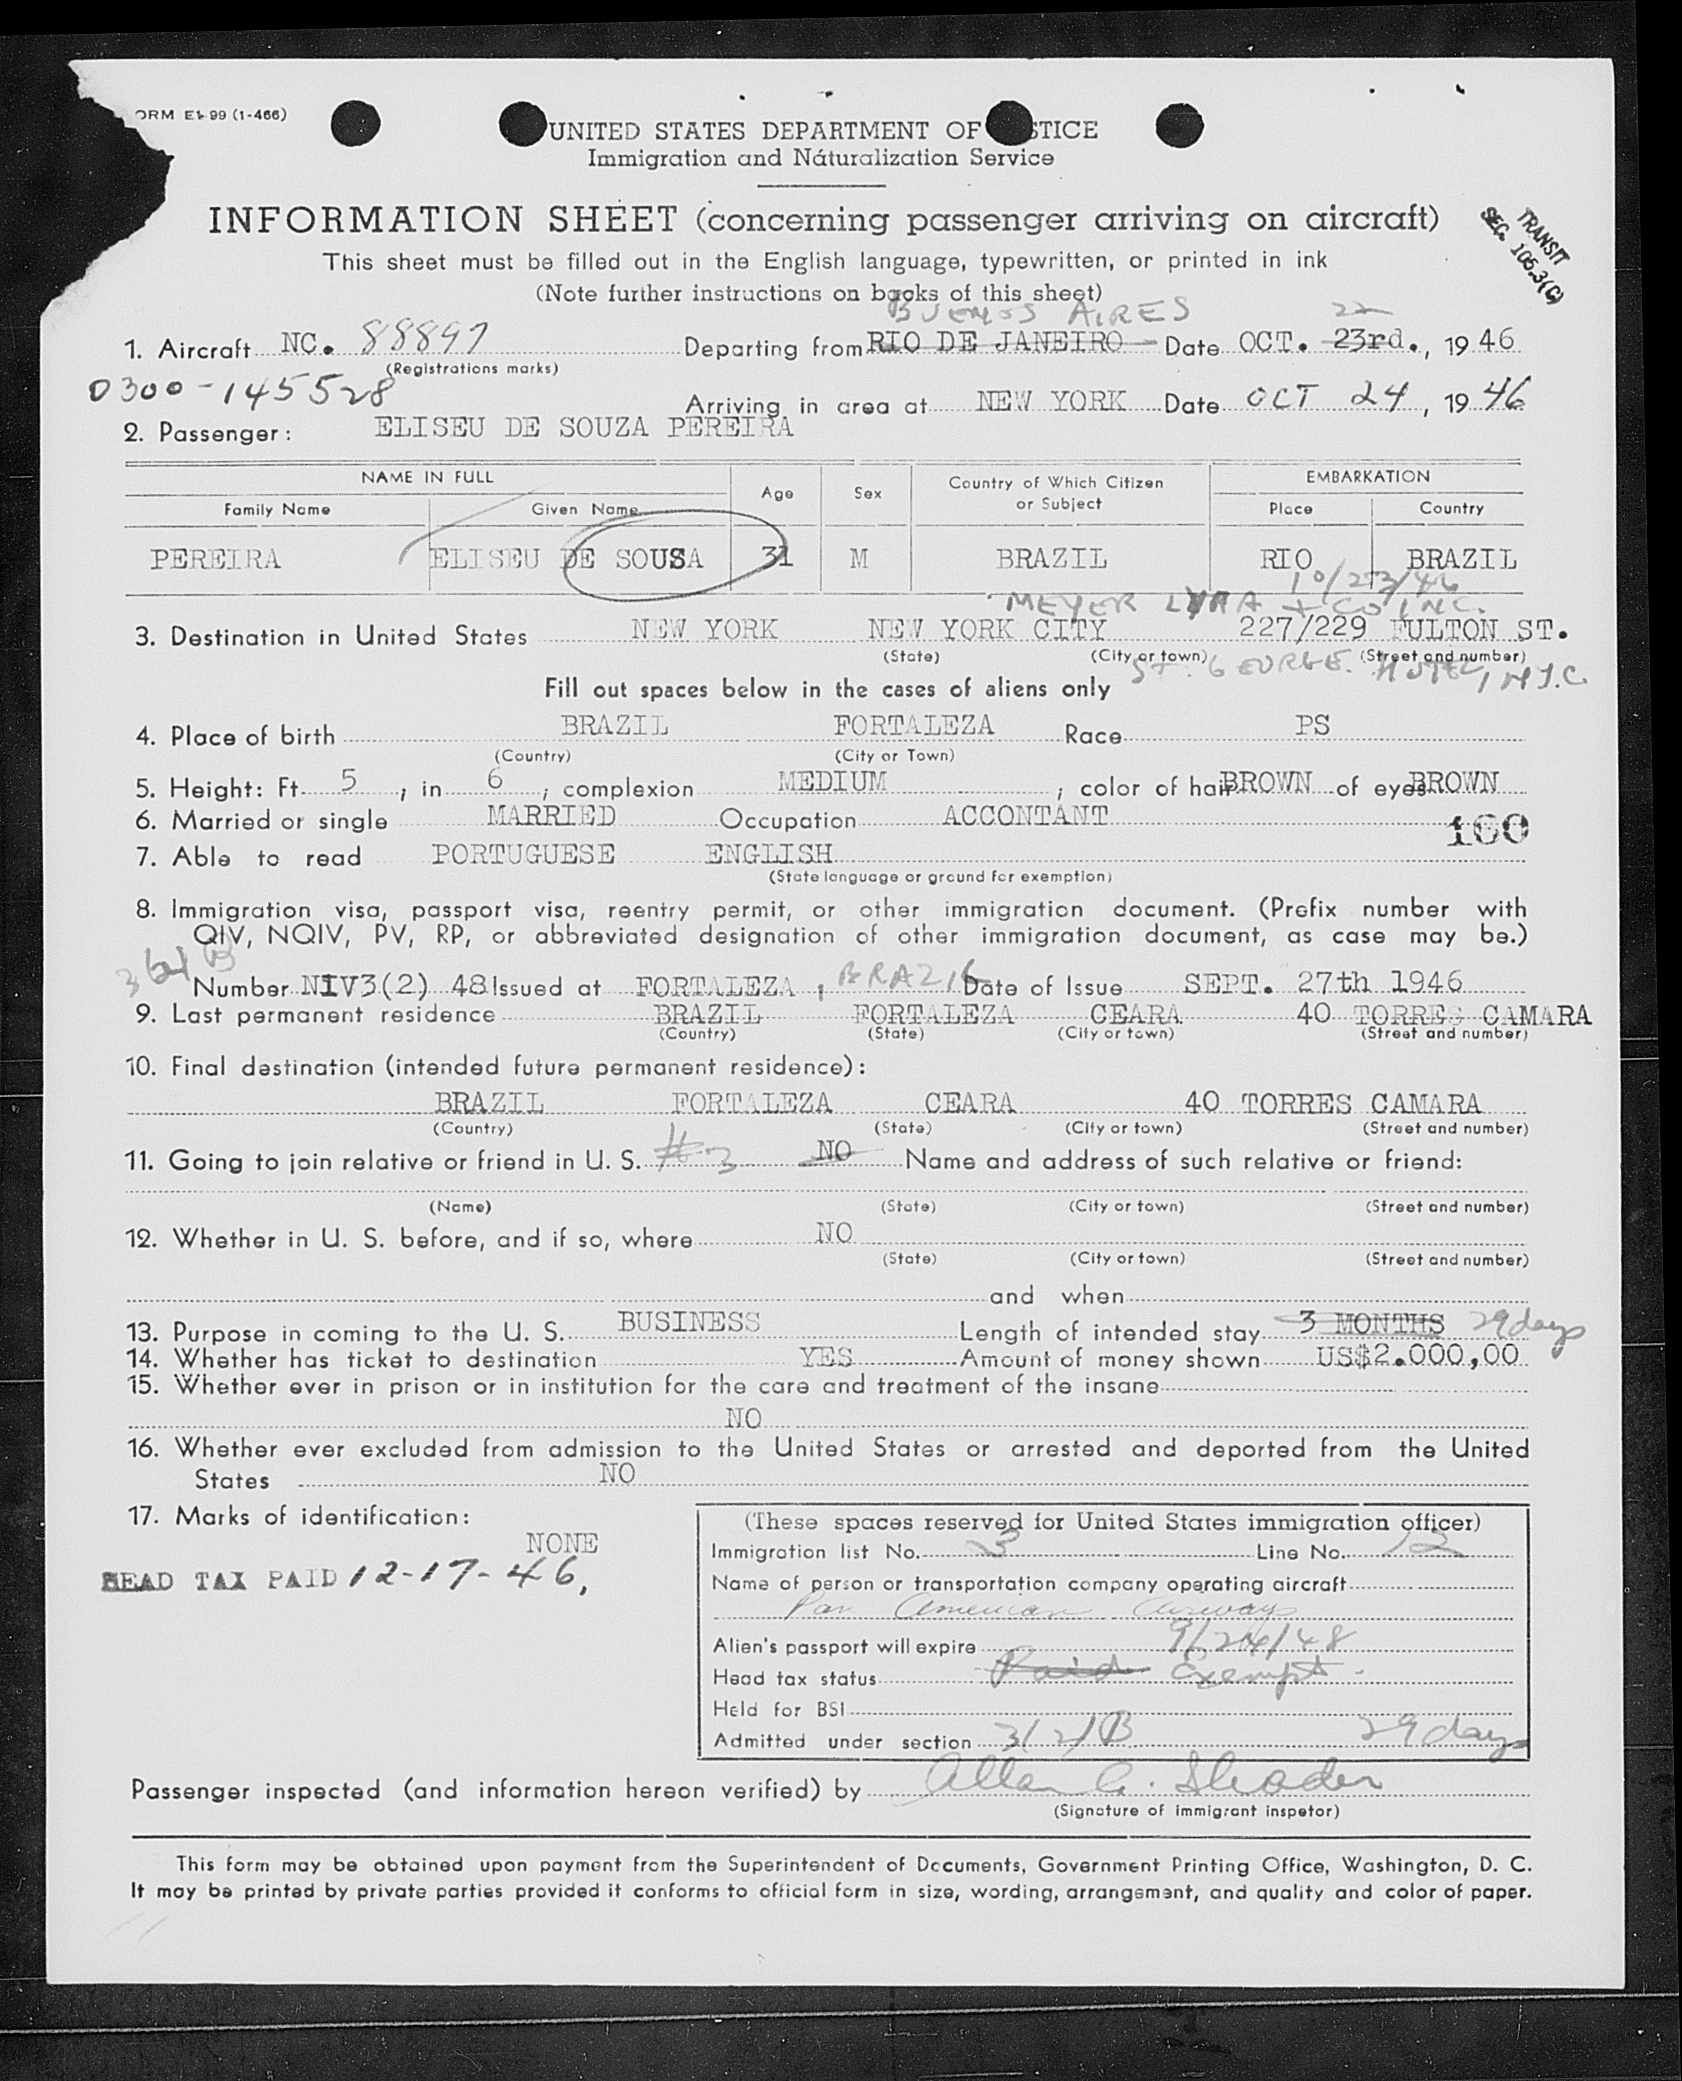 ORM E1-99 (1-466)
UNITED STATES DEPARTMENT OF STICE
Immigration and Naturalization Service
INFORMATION SHEET (concerning passenger arriving on aircraft)
TRANSIT
SEC. 105.3(C)
This sheet must be filled out in the English language, typewritten, or printed in ink
(Note further instructions on backs of this sheet)
BUENOS AIRES 22
1. Aircraft NC. 88897 Departing from RIO DE JANEIRO Date OCT. 23rd., 1946
(Registrations marks)
0300-145528
Arriving in area at NEW YORK Date OCT 24, 1946
2. Passenger: ELISEU DE SOUZA PEREIRA
NAME IN FULL Age Sex Country of Which Citizen or Subject EMBARKATION
Family Name Given Name Place Country
PEREIRA ELISEU DE SOUSA 31 M BRAZIL RIO BRAZIL
10/23/46
MEYER LYRA + CO INC.
3. Destination in United States NEW YORK NEW YORK CITY 227/229 FULTON ST.
(State) (City or town) (Street and number)
ST. GEORGE. HOTEL, N.Y.C.
Fill out spaces below in the cases of aliens only
4. Place of birth BRAZIL FORTALEZA Race PS
(Country) (City or Town)
5. Height: Ft. 5, in 6, complexion MEDIUM; color of hair BROWN of eyes BROWN
6. Married or single MARRIED Occupation ACCONTANT
160
7. Able to read PORTUGUESE ENGLISH
(State language or ground for exemption)
8. Immigration visa, passport visa, reentry permit, or other immigration document. (Prefix number with
QIV, NQIV, PV, RP, or abbreviated designation of other immigration document, as case may be.)
Number NIV3(2) 48 Issued at FORTALEZA, BRAZIL Date of Issue SEPT. 27th 1946
9. Last permanent residence BRAZIL FORTALEZA CEARA 40 TORRES CAMARA
(Country) (State) (City or town) (Street and number)
10. Final destination (intended future permanent residence):
BRAZIL FORTALEZA CEARA 40 TORRES CAMARA
(Country) (State) (City or town) (Street and number)
11. Going to join relative or friend in U. S. #3 NO Name and address of such relative or friend:
(Name) (State) (City or town) (Street and number)
12. Whether in U. S. before, and if so, where NO
(State) (City or town) (Street and number)
and when
13. Purpose in coming to the U. S. BUSINESS Length of intended stay 3 MONTHS 29 days
14. Whether has ticket to destination YES Amount of money shown US$2.000,00
15. Whether ever in prison or in institution for the care and treatment of the insane
NO
16. Whether ever excluded from admission to the United States or arrested and deported from the United
States NO
17. Marks of identification:
NONE
HEAD TAX PAID 12-17-46,
(These spaces reserved for United States immigration officer)
Immigration list No. 3 Line No. 12
Name of person or transportation company operating aircraft
Pan American Airways
Alien's passport will expire 9/24/48
Head tax status Paid Exempt
Held for BSI
Admitted under section 3(2)B 29 days
Passenger inspected (and information hereon verified) by Allan C. Shader
(Signature of immigrant inspetor)
This form may be obtained upon payment from the Superintendent of Documents, Government Printing Office, Washington, D. C.
It may be printed by private parties provided it conforms to official form in size, wording, arrangement, and quality and color of paper.